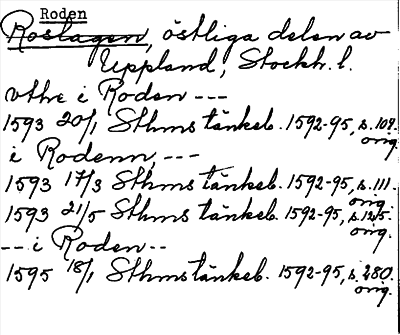 Roden
Roslagen, östliga delen av
Uppland, Stockh. l.
vthe i Roden ---
1593 20/1 Sthms tänkeb. 1592-95, s. 109. orig.
i Rodenn, ---
1593 17/3 Sthms tänkeb. 1592-95, s. 111. orig.
1593 21/5 Sthms tänkeb. 1592-95, s. 125. orig.
--- i Roden --
1595 18/1 Sthms tänkeb. 1592-95, s. 280. orig.